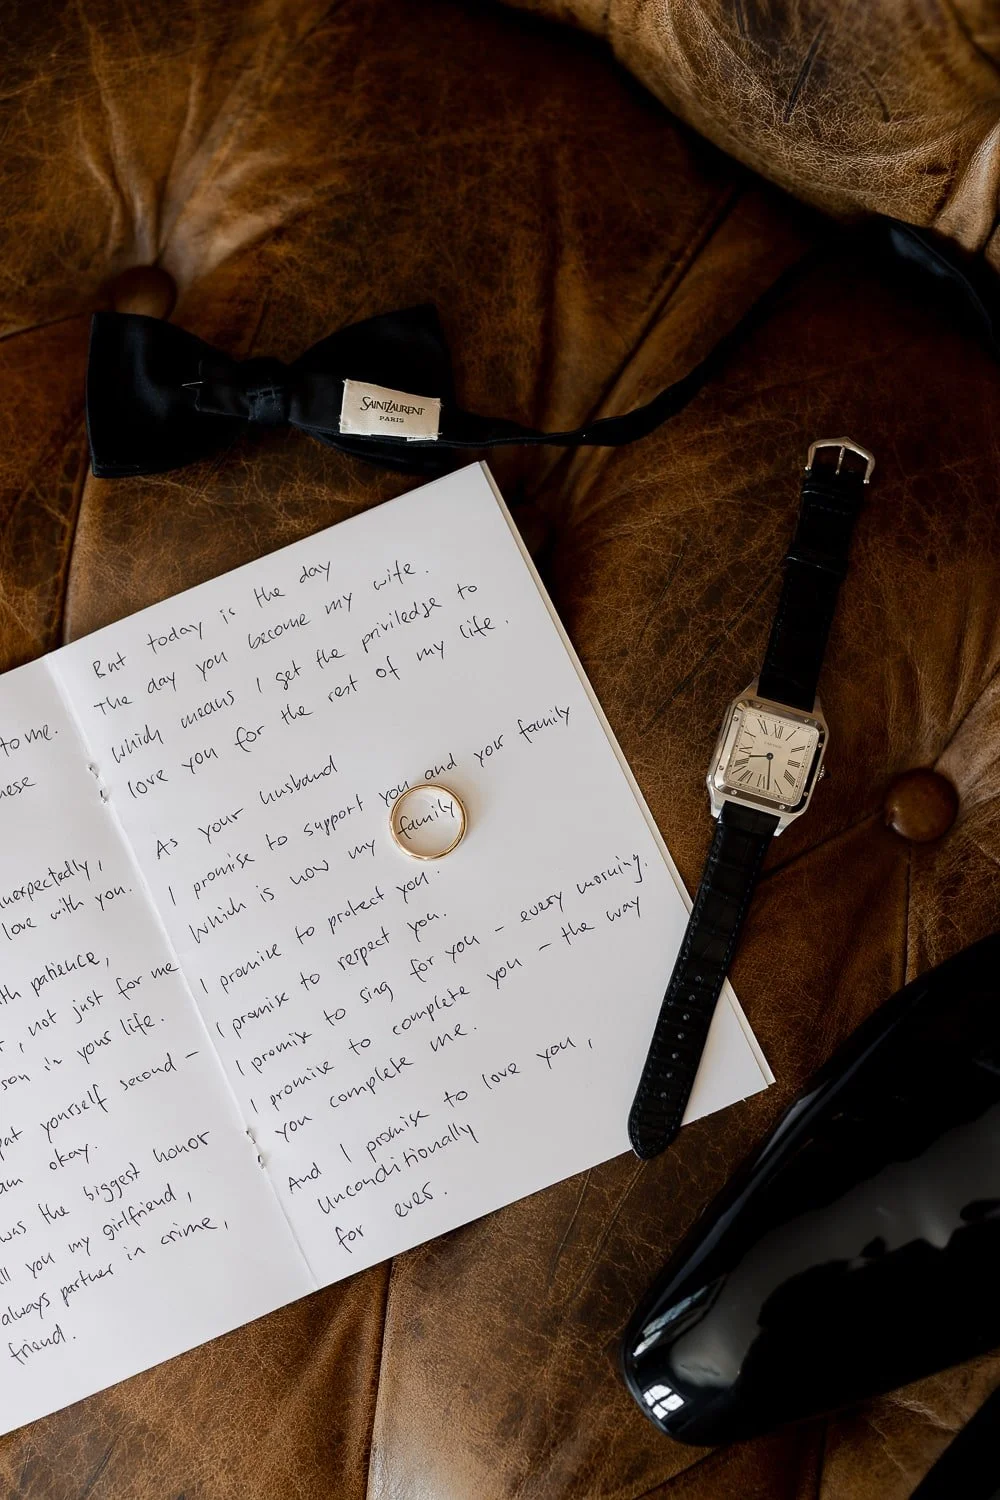 SAINT LAURENT
PARIS
to me.
unexpectedly,
love with you.
patience,
, not just for me
in your life.
yourself second –
am okay.
was the biggest honor
you my girlfriend,
always partner in crime,
friend.
But today is the day
The day you become my wife.
which means I get the priviledge to
love you for the rest of my life.
As your husband
I promise to support you and your family
which is now my family
I promise to protect you.
I promise to respect you.
I promise to sing for you – every morning.
I promise to complete you – the way
you complete me.
And I promise to love you,
unconditionally
for ever.